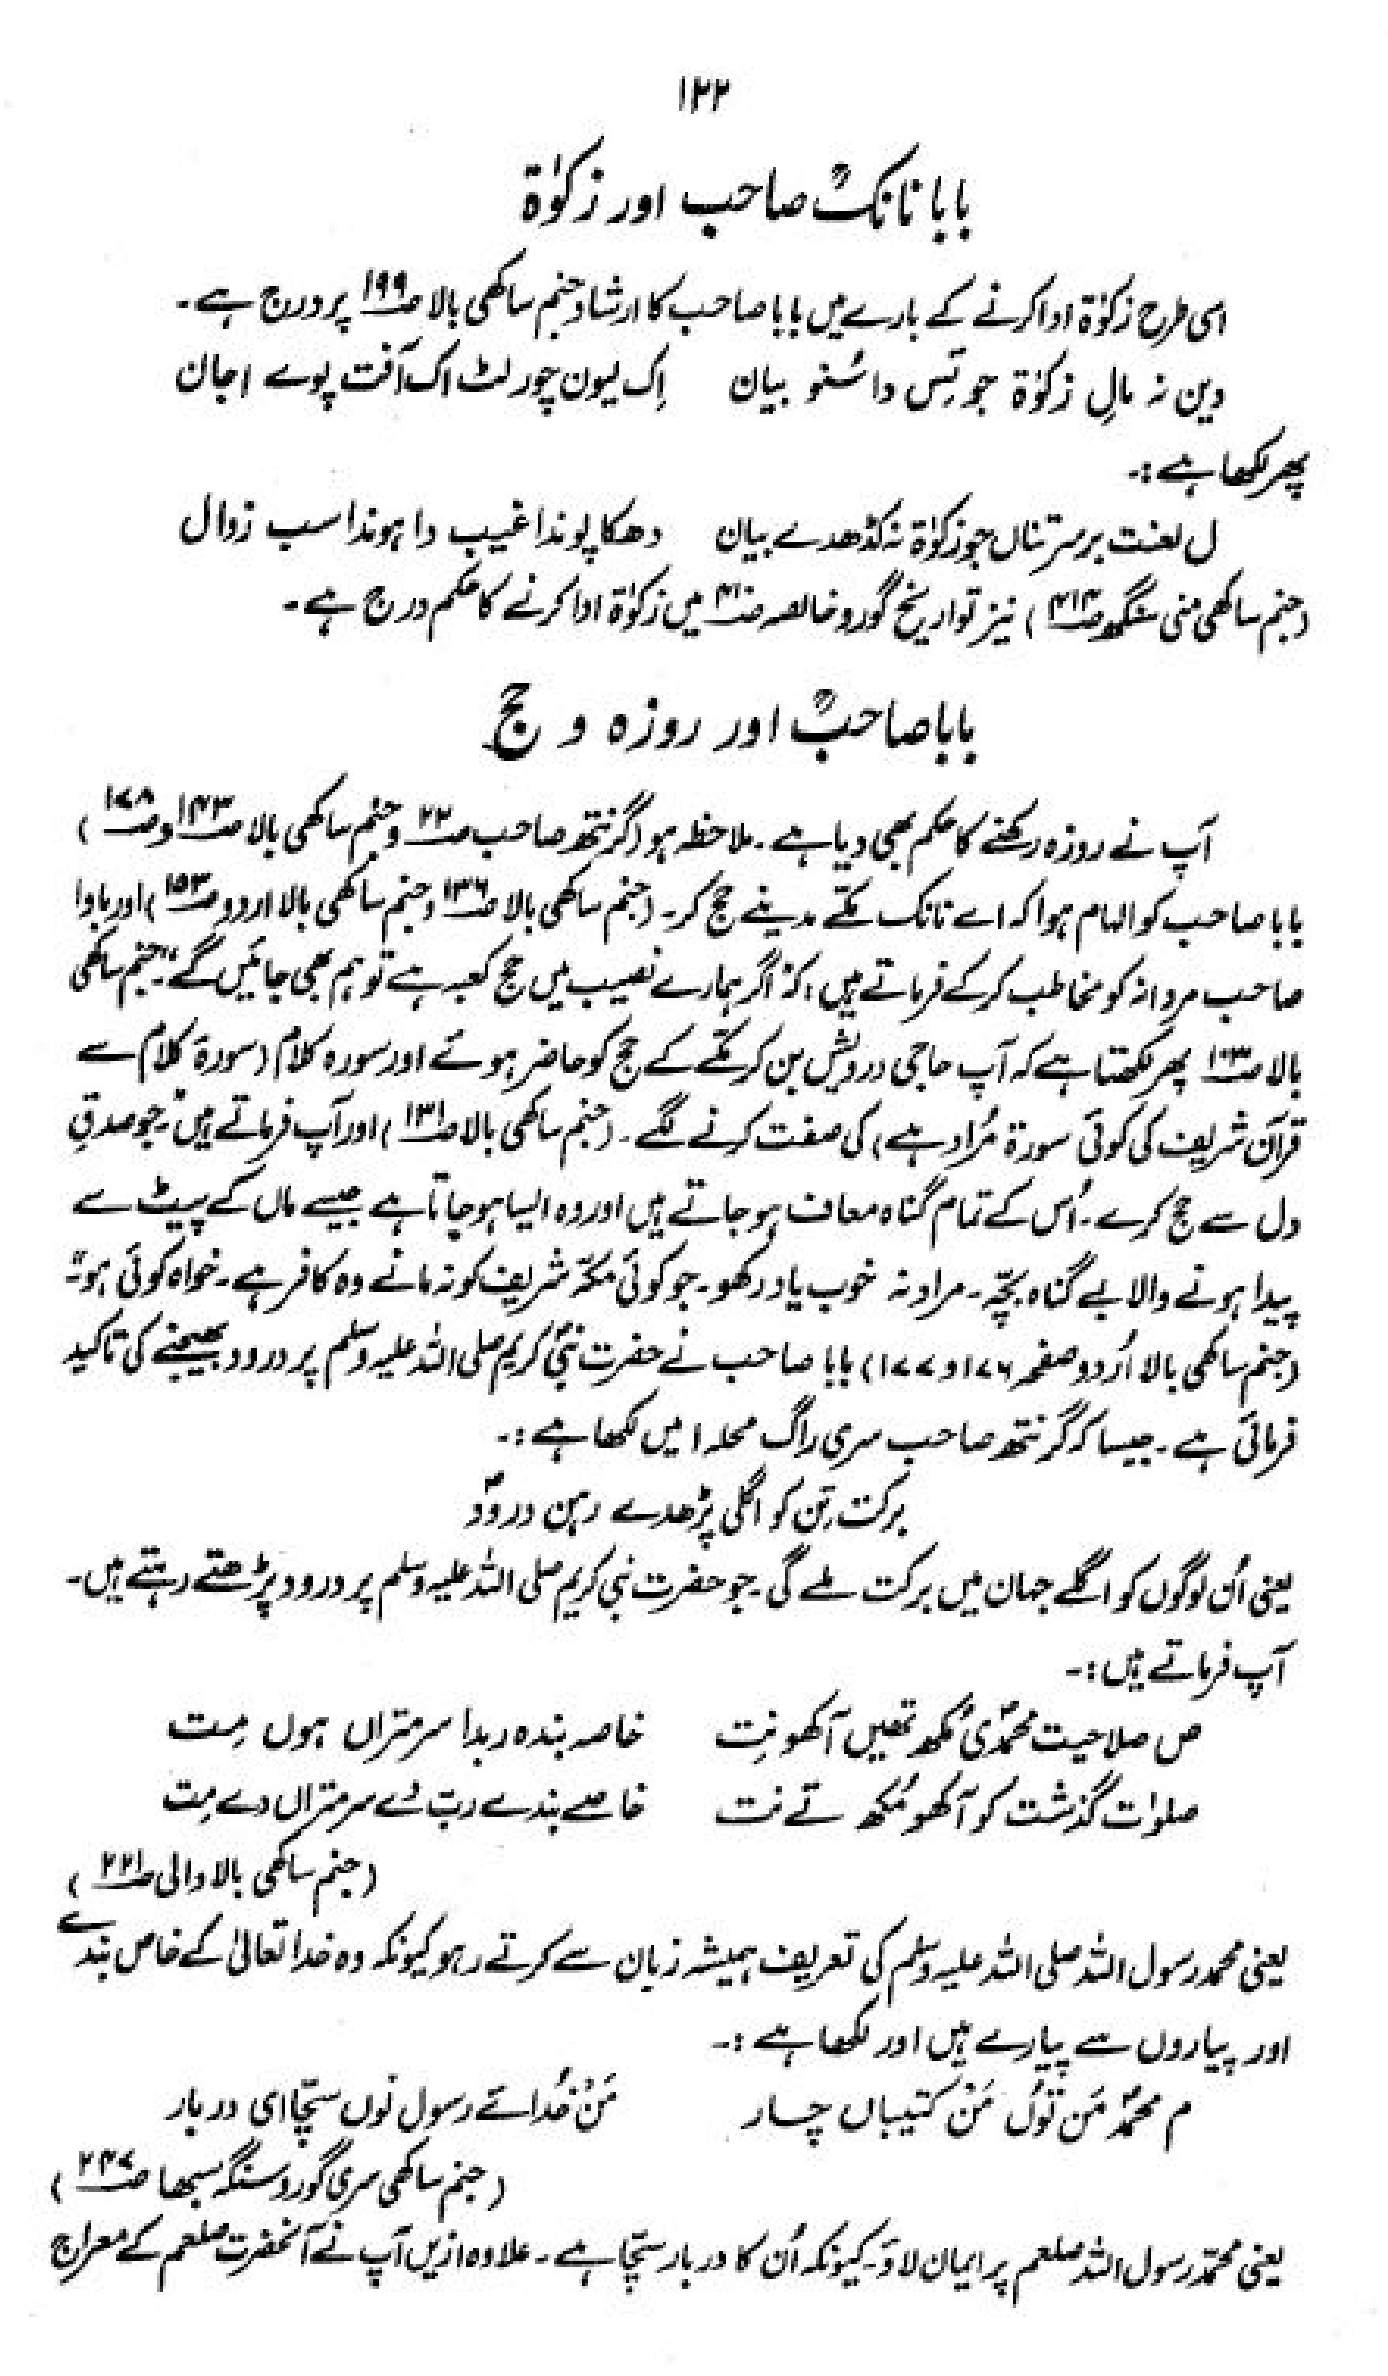 ۱۲۲
بابا نانکؒ صاحب اور زکوٰۃ
اسی طرح زکوٰۃ ادا کرنے کے بارے میں بابا صاحب کا ارشاد جنم ساکھی بالا صـ۱۹۹ پر درج ہے۔
دین نہ مالِ زکوٰۃ جو تِس دا سُنو بیان اِک لیون چور لٹ اک آفت پوے اجان
پھر لکھا ہے:۔
ل لعنت برسر تناں جو زکوٰۃ نہ کڈھدے بیان دھکا پوندا غیب دا ہوندا سب زوال
(جنم ساکھی منی سنگھ صـ۴۱۳) نیز تواریخ گورو خالصہ میں زکوٰۃ ادا کرنے کا حکم درج ہے۔
بابا صاحبؒ اور روزہ و حج
آپ نے روزہ رکھنے کا حکم بھی دیا ہے۔ ملاحظہ ہو (گرنتھ صاحب صـ۲۲ و جنم ساکھی بالا صـ۱۴۳ و صـ۱۷۸)
بابا صاحب کو الہام ہوا کہ اے نانک مکّے مدینے حج کر۔ (جنم ساکھی بالا صـ۱۳۶ و جنم ساکھی بالا اردو صـ۱۵۳) اور باوا
صاحب مردانہ کو مخاطب کرکے فرماتے ہیں، کہ "اگر ہمارے نصیب میں حج کعبہ ہے تو ہم بھی جائیں گے"۔ جنم ساکھی
بالا پھر لکھتا ہے کہ آپ حاجی درویش بن کر مکّے کے حج کو حاضر ہوئے اور سورہ کلام (سورۃ کلام سے
قرآن شریف کی کوئی سورۃ مُراد ہے) کی صفت کرنے لگے۔ (جنم ساکھی بالا صـ۱۳۱) اور آپ فرماتے ہیں "جو صدقِ
دل سے حج کرے۔ اُس کے تمام گناہ معاف ہو جاتے ہیں اور وہ ایسا ہو جاتا ہے جیسے ماں کے پیٹ سے
پیدا ہونے والا بے گناہ بچّہ۔ مردانہ خوب یاد رکھو۔ جو کوئی مکّہ شریف کو نہ مانے وہ کافر ہے۔ خواہ کوئی ہو"۔
(جنم ساکھی بالا اُردو صفحہ ۱۷۶ و ۱۷۷) بابا صاحب نے حضرت نبیؐ کریم صلی اللہ علیہ وسلم پر درود بھیجنے کی تاکید
فرمائی ہے۔ جیسا کہ گرنتھ صاحب سری راگ محلہ ۱ میں لکھا ہے:۔
برکت تِن کو اگلی پڑھدے رہن درودؐ
یعنی اُن لوگوں کو اگلے جہان میں برکت ملے گی۔ جو حضرت نبی کریم صلی اللہ علیہ وسلم پر درود پڑھتے رہتے ہیں۔
آپ فرماتے ہیں:۔
ص صلاحیت محمدؐی مُکھ تھیں آکھو نِت خاصہ بندہ ربدا سر متراں ہوں مِت
صلوات گذشت کو آکھو مُکھ تے نت خاصے بندے ربّ دے سر متراں دے مِت
(جنم ساکھی بالا والی صـ۲۲۱)
یعنی محمد رسول اللہ صلی اللہ علیہ وسلم کی تعریف ہمیشہ زبان سے کرتے رہو کیونکہ وہ خدا تعالیٰ کے خاص بندے
اور پیاروں سے پیارے ہیں اور لکھا ہے:۔
م محمدؐ مَن تُوں مَن کتیباں چار مَن خُدائے رسول نوں سچّا ای دربار
(جنم ساکھی سری گورو سنگھ سبھا صـ۲۴۷)
یعنی محمدؐ رسول اللہ صلعم پر ایمان لاؤ۔ کیونکہ اُن کا دربار سچّا ہے۔ علاوہ ازیں آپ نے آنحضرت صلعم کے معراج